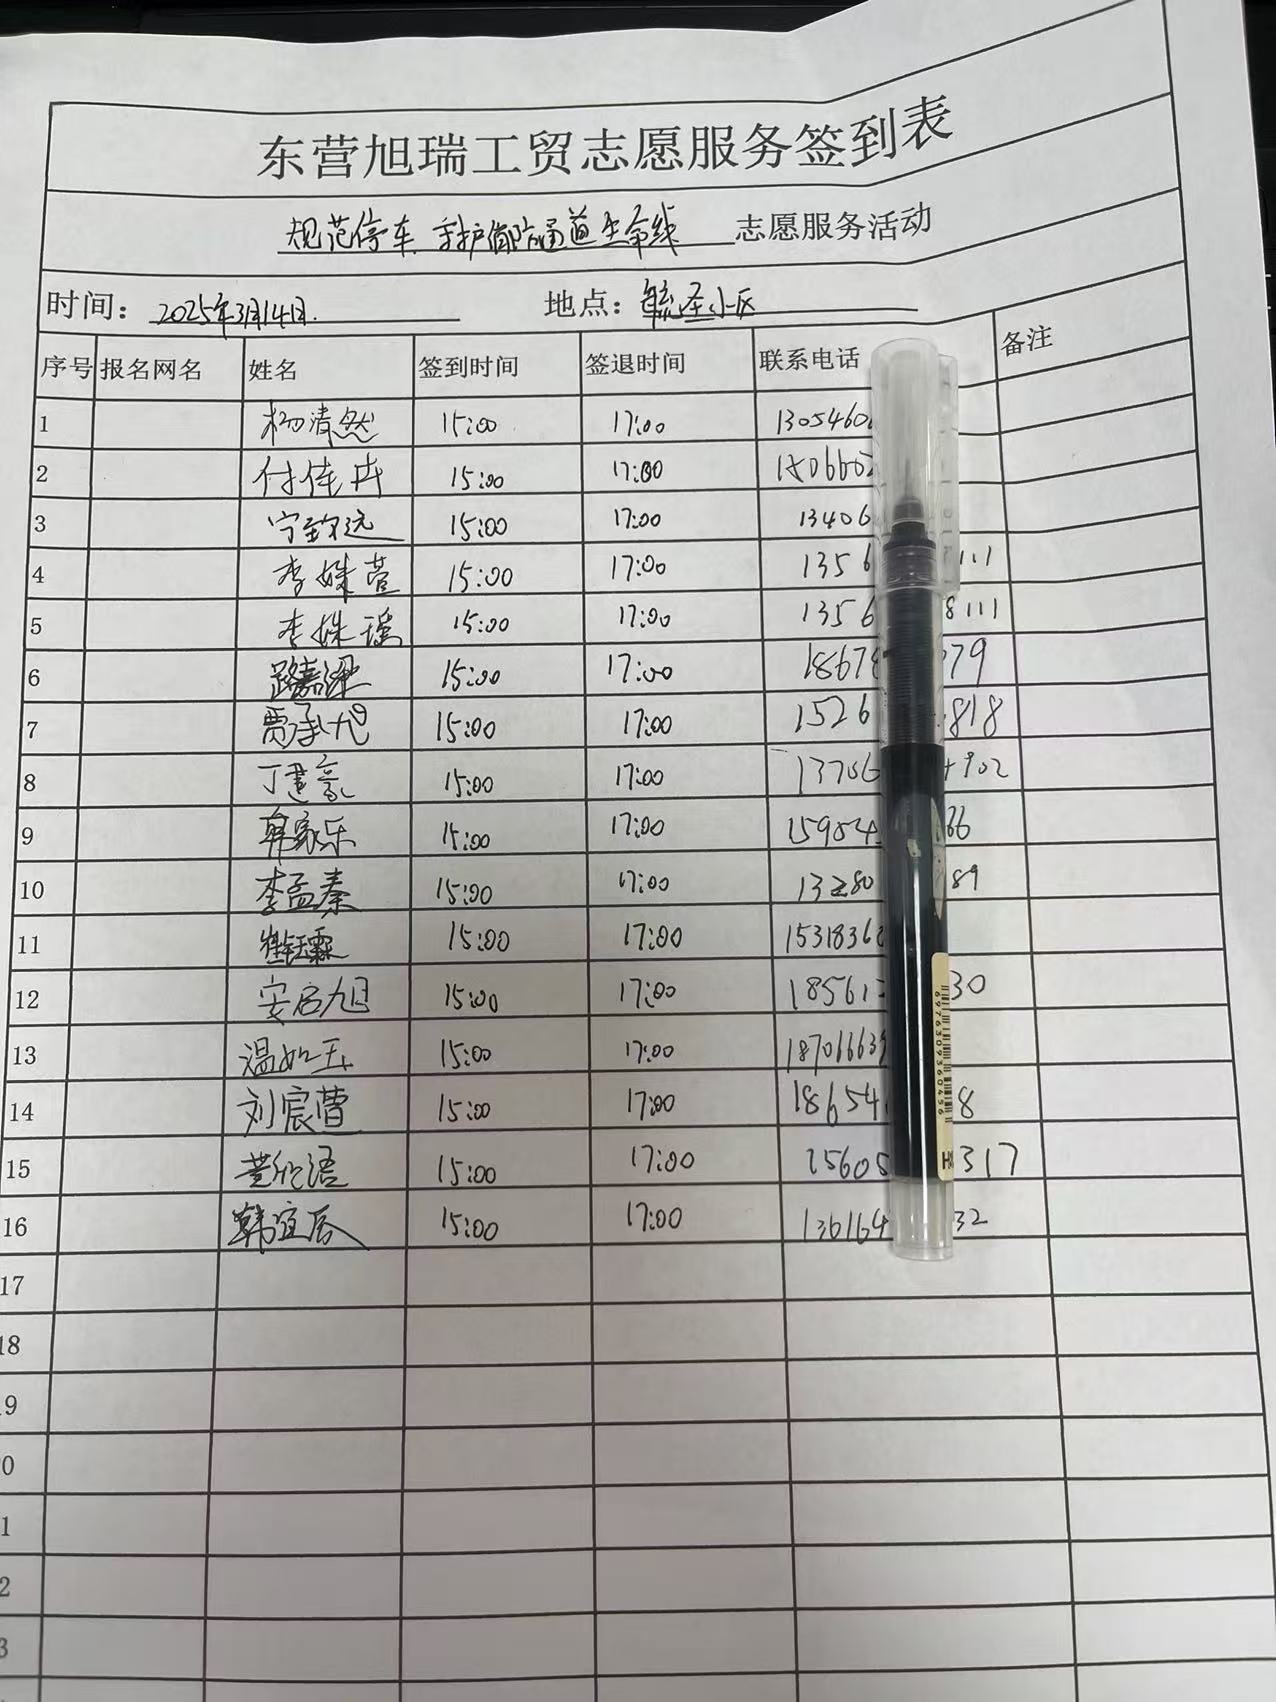 东营旭瑞工贸志愿服务签到表
规范停车 守护消防通道生命线 志愿服务活动
时间: 2025年3月14日. 地点: 小区
序号 报名网名 姓名 签到时间 签退时间 联系电话 备注
1 杨清然 15:00 17:00 1305460
2 付佳卉 15:00 17:00 1806602
3 宁致远 15:00 17:00 13406
4 李姝萱 15:00 17:00 1356 111
5 李姝瑶 15:00 17:00 1356 8111
6 路嘉 15:00 17:00 1867 79
7 贾承旭 15:00 17:00 1526 818
8 丁建豪 15:00 17:00 13706 902
9 韩家乐 15:00 17:00 159 66
10 李孟秦 15:00 17:00 13280 89
11 崔钰霖 15:00 17:00 1531836
12 安启旭 15:00 17:00 18561 30
13 温如玉 15:00 17:00 18706663
14 刘宸萱 15:00 17:00 18654 8
15 董欣语 15:00 17:00 15605 317
16 韩宜辰 15:00 17:00 136164 32
17
18
9
0
1
2
3
6976309360456